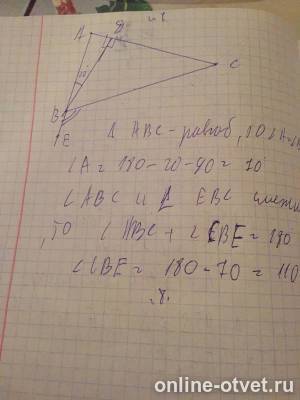 A
C
20
B
E
Δ ABC - равноб, то ∠A=
∠A = 180-20-90 = 70
∠ABC и ∠ EBC смеж
, то ∠ABC + ∠CBE = 180
∠CBE = 180-70 = 110
online-otvet.ru